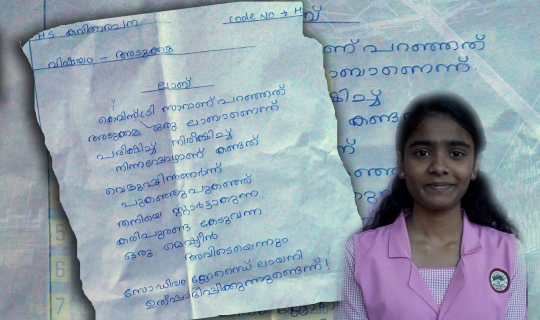 H S കവിതാരചന
Code No → H
വിഷയം - അടുക്കള
ലാബ്
കെമിസ്ട്രി സാറാണ് പറഞ്ഞത്
അടുക്കള ഒരു ലാബാണെന്ന്
പരീക്ഷിച്ച് നിരീക്ഷിച്ച്
നിന്നപ്പോഴാണ് കണ്ടത്
വെളുപ്പിനുണർന്ന്
പുകഞ്ഞു പുകഞ്ഞ്
തനിയെ സ്റ്റാർട്ടാകുന്ന
കരിപുരണ്ട കേടുവന്ന
ഒരു മെഷ്യീൻ
അവിടെയെന്നും
സോഡിയം ക്ലോറൈഡ് ലായനി
ഉത്പാദിപ്പിക്കുന്നുണ്ടെന്ന് !
പറഞ്ഞത്
ലാബാണെന്ന്
5
6
7